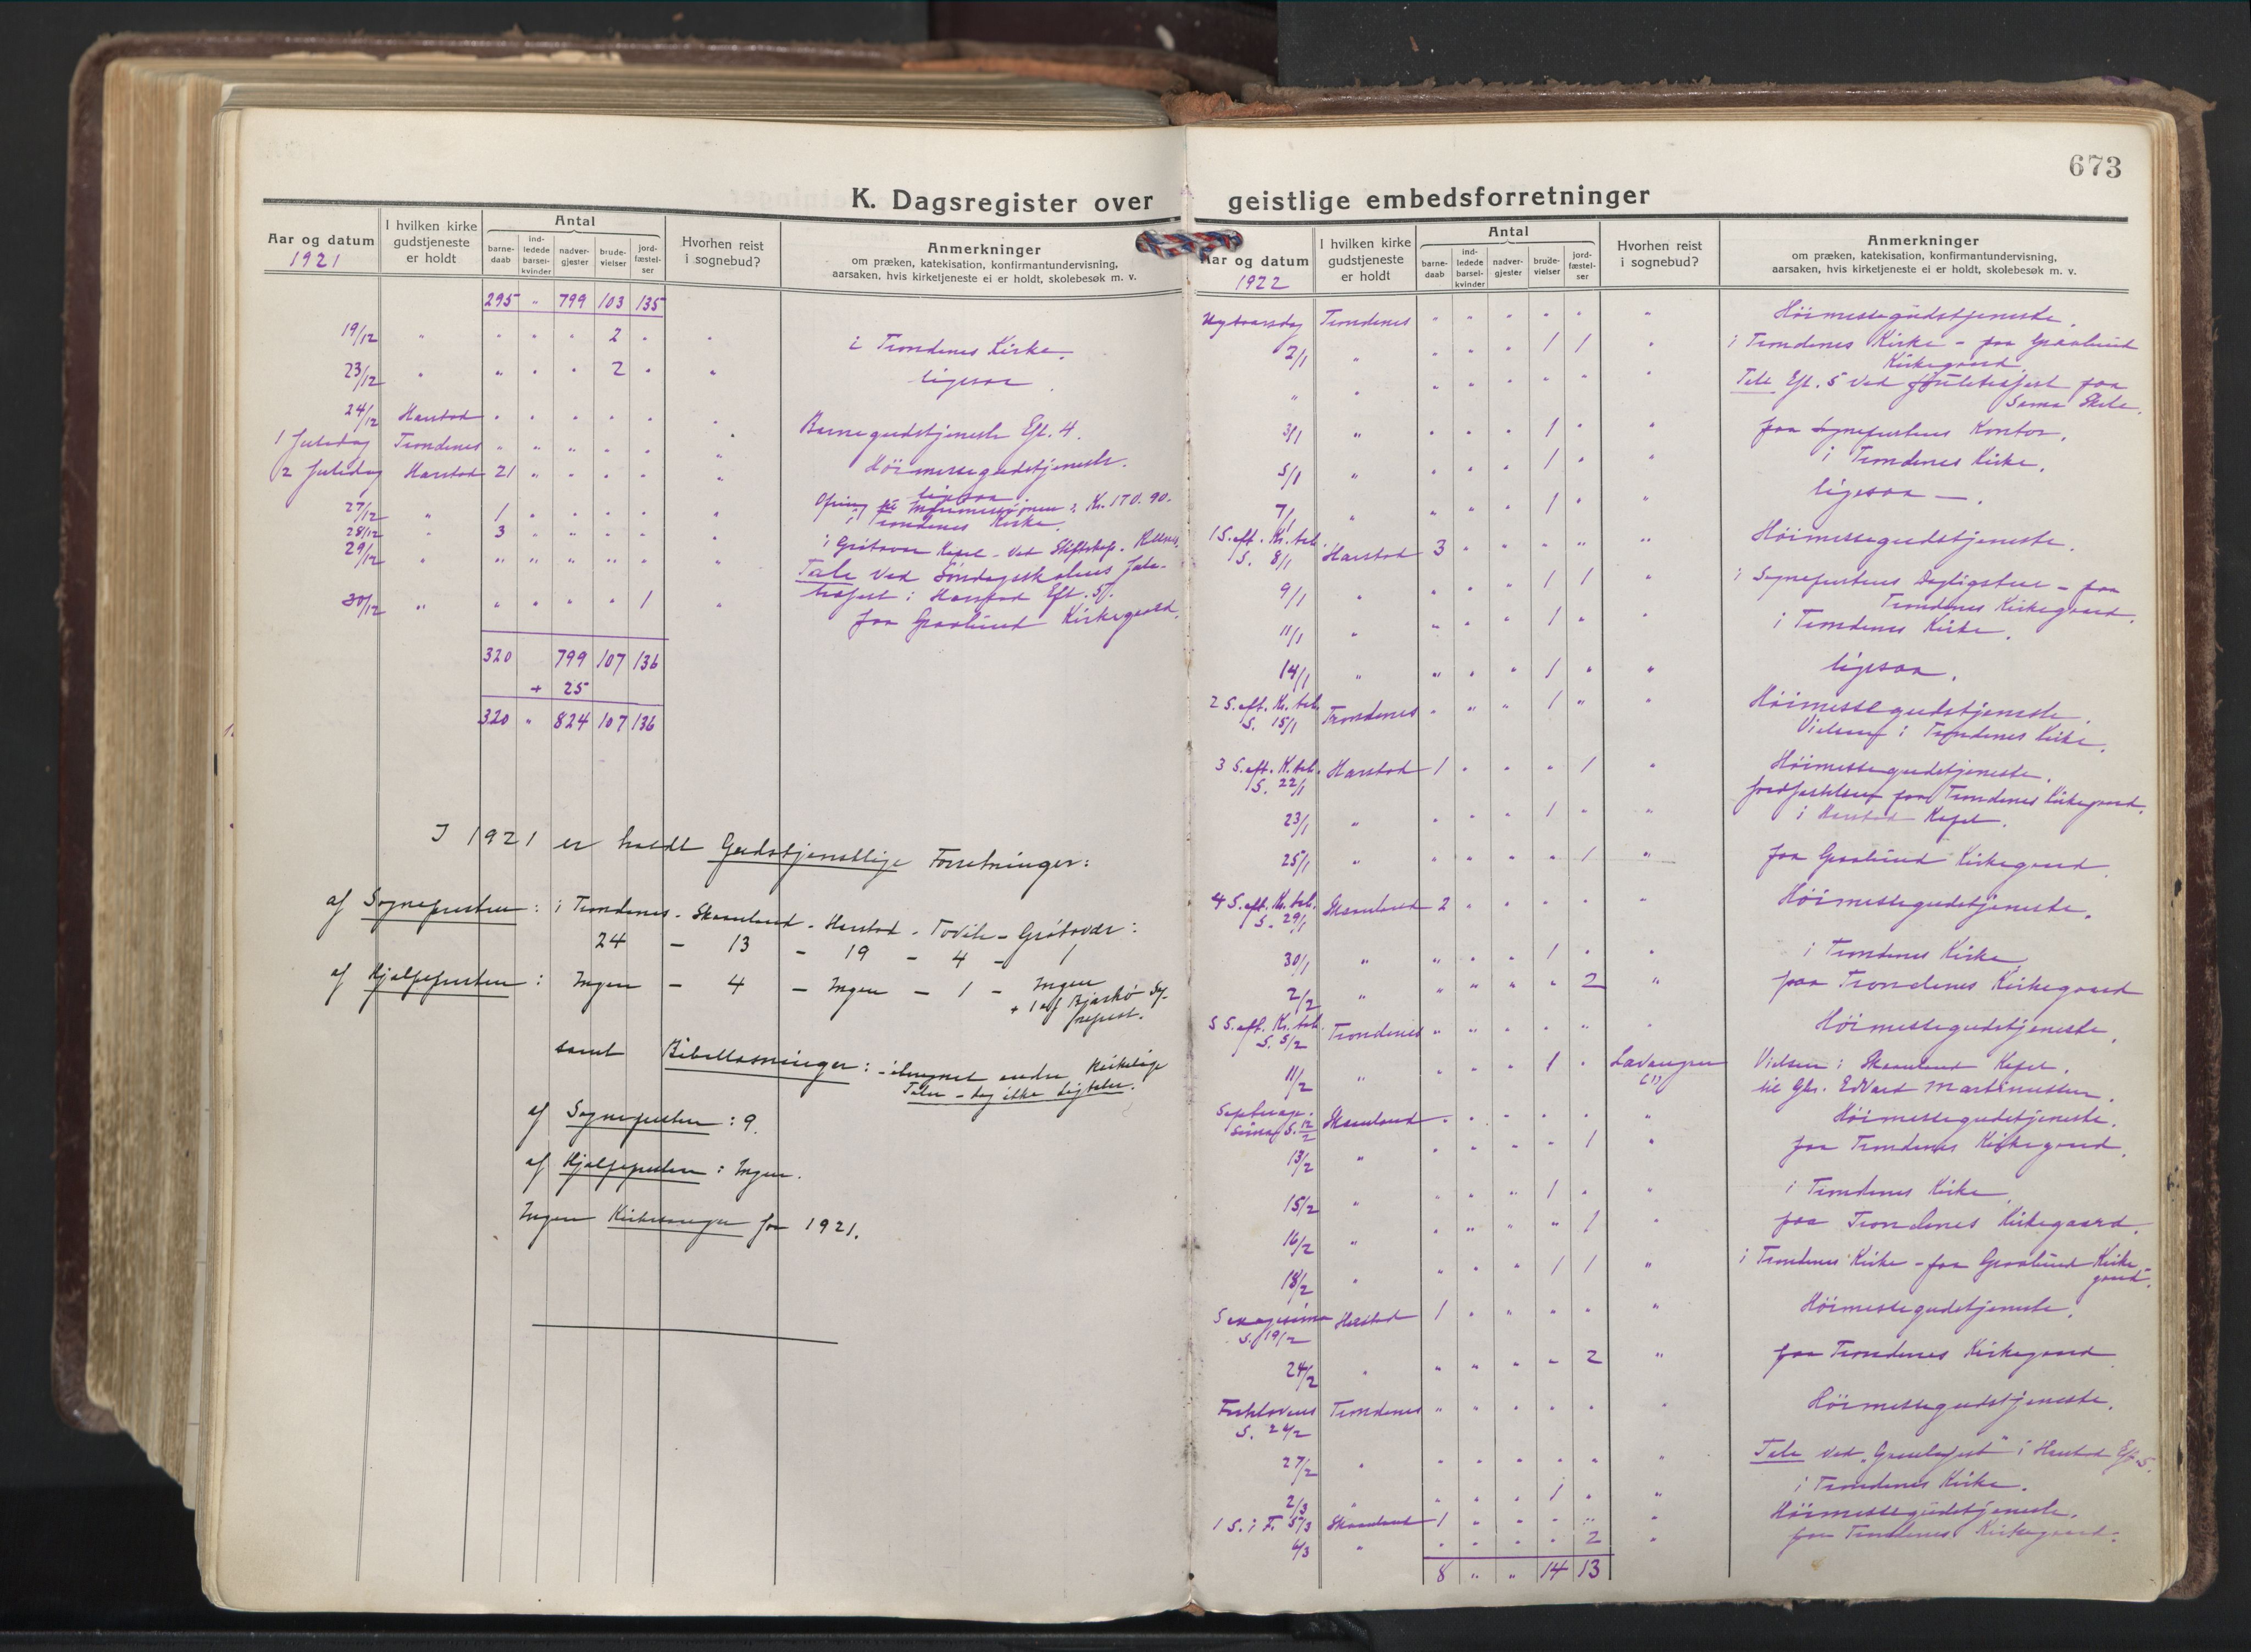 673
K. Dagsregister over
geistlige embedsforretninger
Aar og datum
1921
I hvilken kirke
gudstjeneste
er holdt
Antal
barne-
daab
ind-
ledede
barsel-
kvinder
nadver-
gjester
brude-
vielser
jord-
fæstel-
ser
Hvorhen reist
i sognebud?
Anmerkninger
om præken, katekisation, konfirmantundervisning,
aarsaken, hvis kirketjeneste ei er holdt, skolebesøk m. v.
295 " 799 103 135
19/12 " " " " 2 " " i Trondenes Kirke.
23/12 " " " " 2 " " ligesaa.
24/12 Harstad " " " " " " Barnegudstjeneste Eft. 4.
1 Juledag Trondenes " " " " " " Höimessegudstjeneste.
2 Juledag Harstad 21 " " " " " ligesaa
Ofring til Indremissionen: Kr. 170.90.
27/12 " 1 " " " " " i Trondenes Kirke.
28/12 " 3 " " " " " i Grötavær Kapel - ved Stiftskap.
29/12 " " " " " " " Tale ved Söndagsskolens Jule-
træfest i Harstad Eft. 5.
30/12 " " " " " 1 " paa Graalund Kirkegaard.
320 799 107 136
+ 25
320 " 824 107 136
I 1921 er holdt Gudstjenstlige Forretninger:
af Sognepresten: i Trondenes - Skaanland - Harstad - Tovik - Grötavær:
24 - 13 - 19 - 4 - 1
af Hjælpepresten: Ingen - 4 - Ingen - 1 - Ingen
+ 1 af Bjarkö Sog-
neprest.
samt Bibellæsninger: - iberegnet andre Kirkelige
Taler - dog ikke Ligtaler.
af Sognepresten: 9.
af Hjælpepresten: Ingen.
Ingen for 1921.
Aar og datum
1922
I hvilken kirke
gudstjeneste
er holdt
Antal
barne-
daab
ind-
ledede
barsel-
kvinder
nadver-
gjester
brude-
vielser
jord-
fæstel-
ser
Hvorhen reist
i sognebud?
Anmerkninger
om præken, katekisation, konfirmantundervisning,
aarsaken, hvis kirketjeneste ei er holdt, skolebesøk m. v.
Nytaarsdag Trondenes " " " " " " Höimessegudstjeneste.
2/1 " " " " 1 1 " i Trondenes Kirke - paa Graalund
Kirkegaard.
" " " " " " " " Tale Eft. 5 ved Juletræfest paa
Sama Skole.
3/1 " " " " 1 " " paa Sogneprestens Kontor.
5/1 " " " " 1 " " i Trondenes Kirke.
7/1 " " " " 1 " " ligesaa -.
1 S. eft. Kr. aab.
S. 8/1 Harstad 3 " " " " " Höimessegudstjeneste.
9/1 " " " " 1 1 " i Sogneprestens Dagligstue - paa
Trondenes Kirkegaard.
11/1 " " " " 1 " " i Trondenes Kirke.
14/1 " " " " 1 " " ligesaa.
2 S. eft. Kr. aab.
S. 15/1 Trondenes " " " 1 " " Höimessegudstjeneste.
Vielsen i Trondenes Kirke.
3 S. eft. K. aab.
S. 22/1 Harstad 1 " " " 1 " Höimessegudstjeneste.
Jordfæstelsen paa Trondenes Kirkegaard.
23/1 " " " " 1 " " i Harstad Kapel.
25/1 " " " " " 1 " paa Graalund Kirkegaard.
4 S. eft. Kr. aab.
S. 29/1 Skaanland 2 " " " " " Höimessegudstjeneste.
30/1 " " " " 1 " " i Trondenes Kirke
2/2 " " " " " 2 " paa Trondenes Kirkegaard
5 S. eft. Kr. aab.
S. 5/2 Trondenes " " " " " " Höimessegudstjeneste.
11/2 " " " " 1 " Lavangen Vielsen i Skaanland Kapel.
(1) til Gbr. Edvard Martinussen.
Septuage-
sima S. 12/2 Skaanland " " " " " " Höimessegudstjeneste.
13/2 " " " " " 1 " paa Trondenes Kirkegaard.
15/2 " " " " 1 " " i Trondenes Kirke
16/2 " " " " " 1 " paa Trondenes Kirkegaard.
18/2 " " " " 1 1 " i Trondenes Kirke - paa Graalund Kirke-
gaard.
Sexagesima
S. 19/2 Harstad 1 " " " " " Höimessegudstjeneste.
24/2 " " " " " 2 " paa Trondenes Kirkegaard
Fastelavens
S. 26/2 Trondenes " " " " " " Höimessegudstjeneste.
27/2 " " " " " " " Tale ved i Harstad Eft. 5.
2/3 " " " " 1 " " i Trondenes Kirke.
1 S. i F. 5/3 Skaanland 1 " " " " " Höimessegudstjeneste.
6/3 " " " " " 2 " paa Trondenes Kirkegaard.
8 " " 14 13